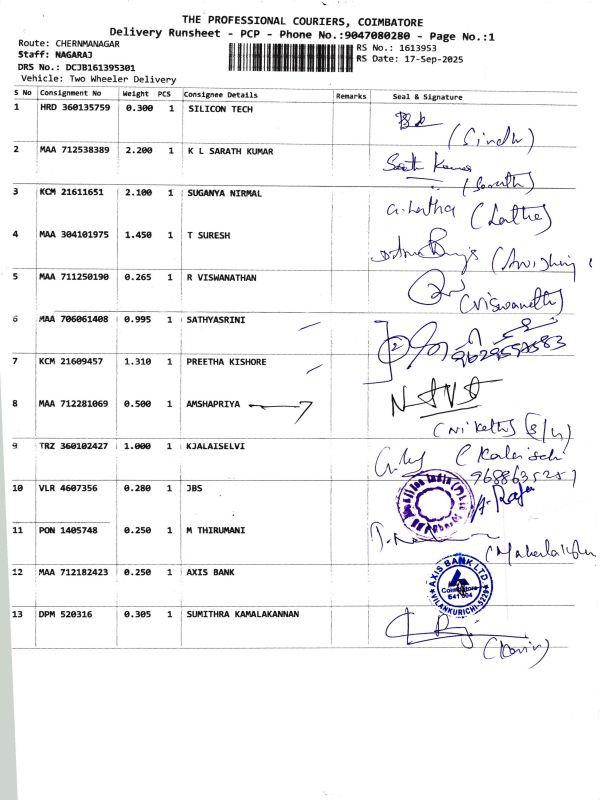 THE PROFESSIONAL COURIERS, COIMBATORE
Delivery Runsheet - PCP - Phone No.:9047080280 - Page No.:1
Route: CHERNMANAGAR
RS No.: 1613953
Staff: NAGARAJ
RS Date: 17-Sep-2025
DRS No.: DCJB161395301
Vehicle: Two Wheeler Delivery
S No Consignment No Weight PCS Consignee Details Remarks Seal & Signature
1 HRD 360135759 0.300 1 SILICON TECH
(Sindhu)
2 MAA 712538389 2.200 1 K L SARATH KUMAR
Sarath Kumar
(Sarath)
3 KCM 21611651 2.100 1 SUGANYA NIRMAL
G. Latha (Latha)
4 MAA 304101975 1.450 1 T SURESH
5 MAA 711250190 0.265 1 R VISWANATHAN
(Viswanath)
6 MAA 706061408 0.995 1 SATHYASRINI
7 KCM 21609457 1.310 1 PREETHA KISHORE
8 MAA 712281069 0.500 1 AMSHAPRIYA
(Niketh)
9 TRZ 360102427 1.000 1 KJALAISELVI
9688635257
10 VLR 4607356 0.280 1 JBS
A. Raja
11 PON 1405748 0.250 1 M THIRUMANI
12 MAA 712182423 0.250 1 AXIS BANK
AXIS BANK LTD
Coimbatore
641 004
13 DPM 520316 0.305 1 SUMITHRA KAMALAKANNAN
(Kavin)